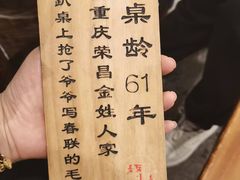 桌龄61年
重庆荣昌金姓人家
趴桌上抢了爷爷写春联的毛